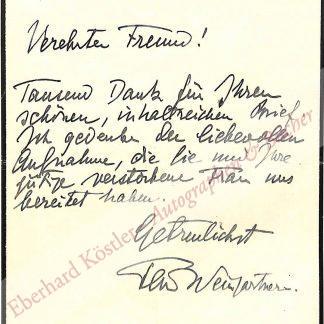 Verehrter Freund!
Tausend Dank für Ihren
schönen, inhaltreichen Brief
Ich gedenke der liebevollen
Aufnahme, die Sie und Ihre
jetzt verstorbene Frau uns
bereitet haben.
Getreulichst
Weingartner.
Eberhard Köstler Autographen & Bücher